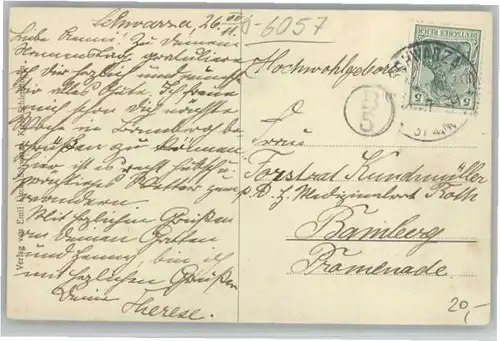 Schwarza, 26. VII. 11.
o-6057
Liebe Emmi! Zu Deinem
Namenstag gratuliere
ich Dir herzlich und wünsche
Dir alles Gute. Ich freue
mich schon Dich nächste
Woche in Bamberg be-
grüßen zu können.
Hier ist es recht hübsch u.
prächtiges Wetter zum
wandern.
Mit herzlichen Grüßen
an Deinen Gatten
und bin ich
mit herzlichen Grüßen
Deine
Therese.
Verlag von Emil
DEUTSCHES REICH
5 5
SCHWARZA
B
5
Hochwohlgeboren
Frau
Forstrat Kundmüller
p. Ad. H. Medizinalrat Roth
Bamberg
Promenade
20,-